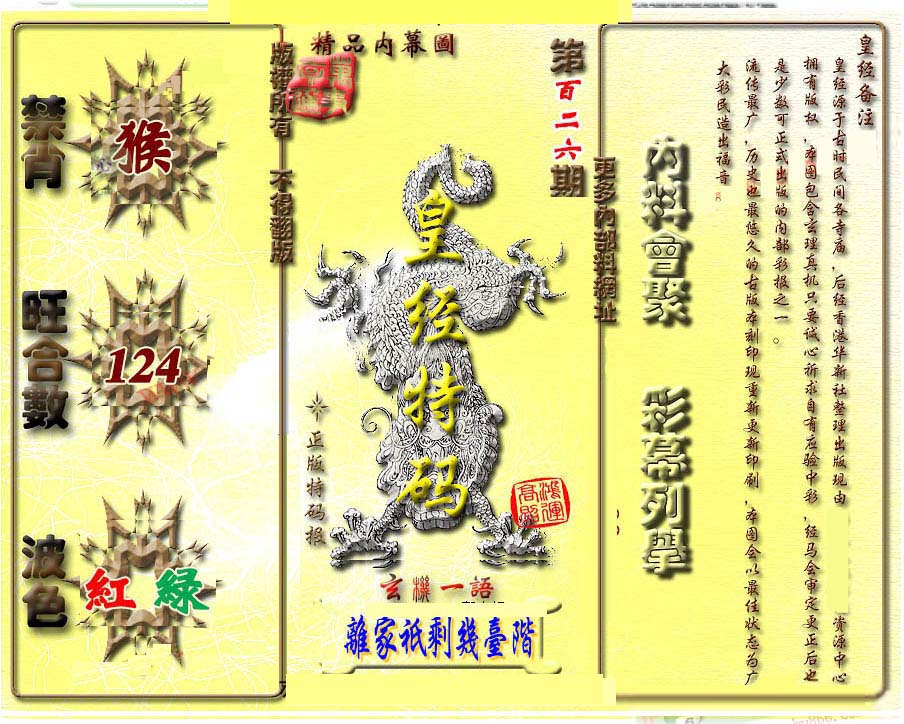 精品内幕圖
第百二六期
版權所有 不得翻版
更多内部料網址
禁肖
猴
旺合數
124
波色
紅 綠
皇经特码
正版特码报
鴻運高照
玄機一語
離家祇剩幾臺階
内料會聚
彩幕列舉
皇经备注
皇经源于古时民间各寺庙，后经香港华新社整理出版现由 资源中心
拥有版权，本图包含玄理真机只要诚心祈求自有应验中彩，经马会审定更正后也
是少数可正式出版的内部彩报之一。
流传最广，历史也最悠久的古版本刻印现重新更新印刷，本图会以最佳状态为广
大彩民造出福音